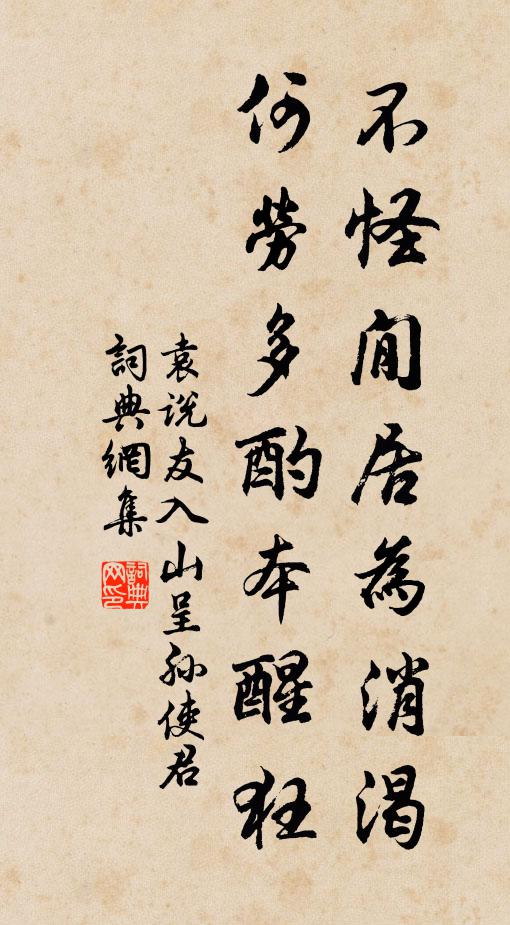 不怪閒居為消渴
何勞多酌本醒狂
袁説友入山呈孙使君
詞典網集
詞典网印